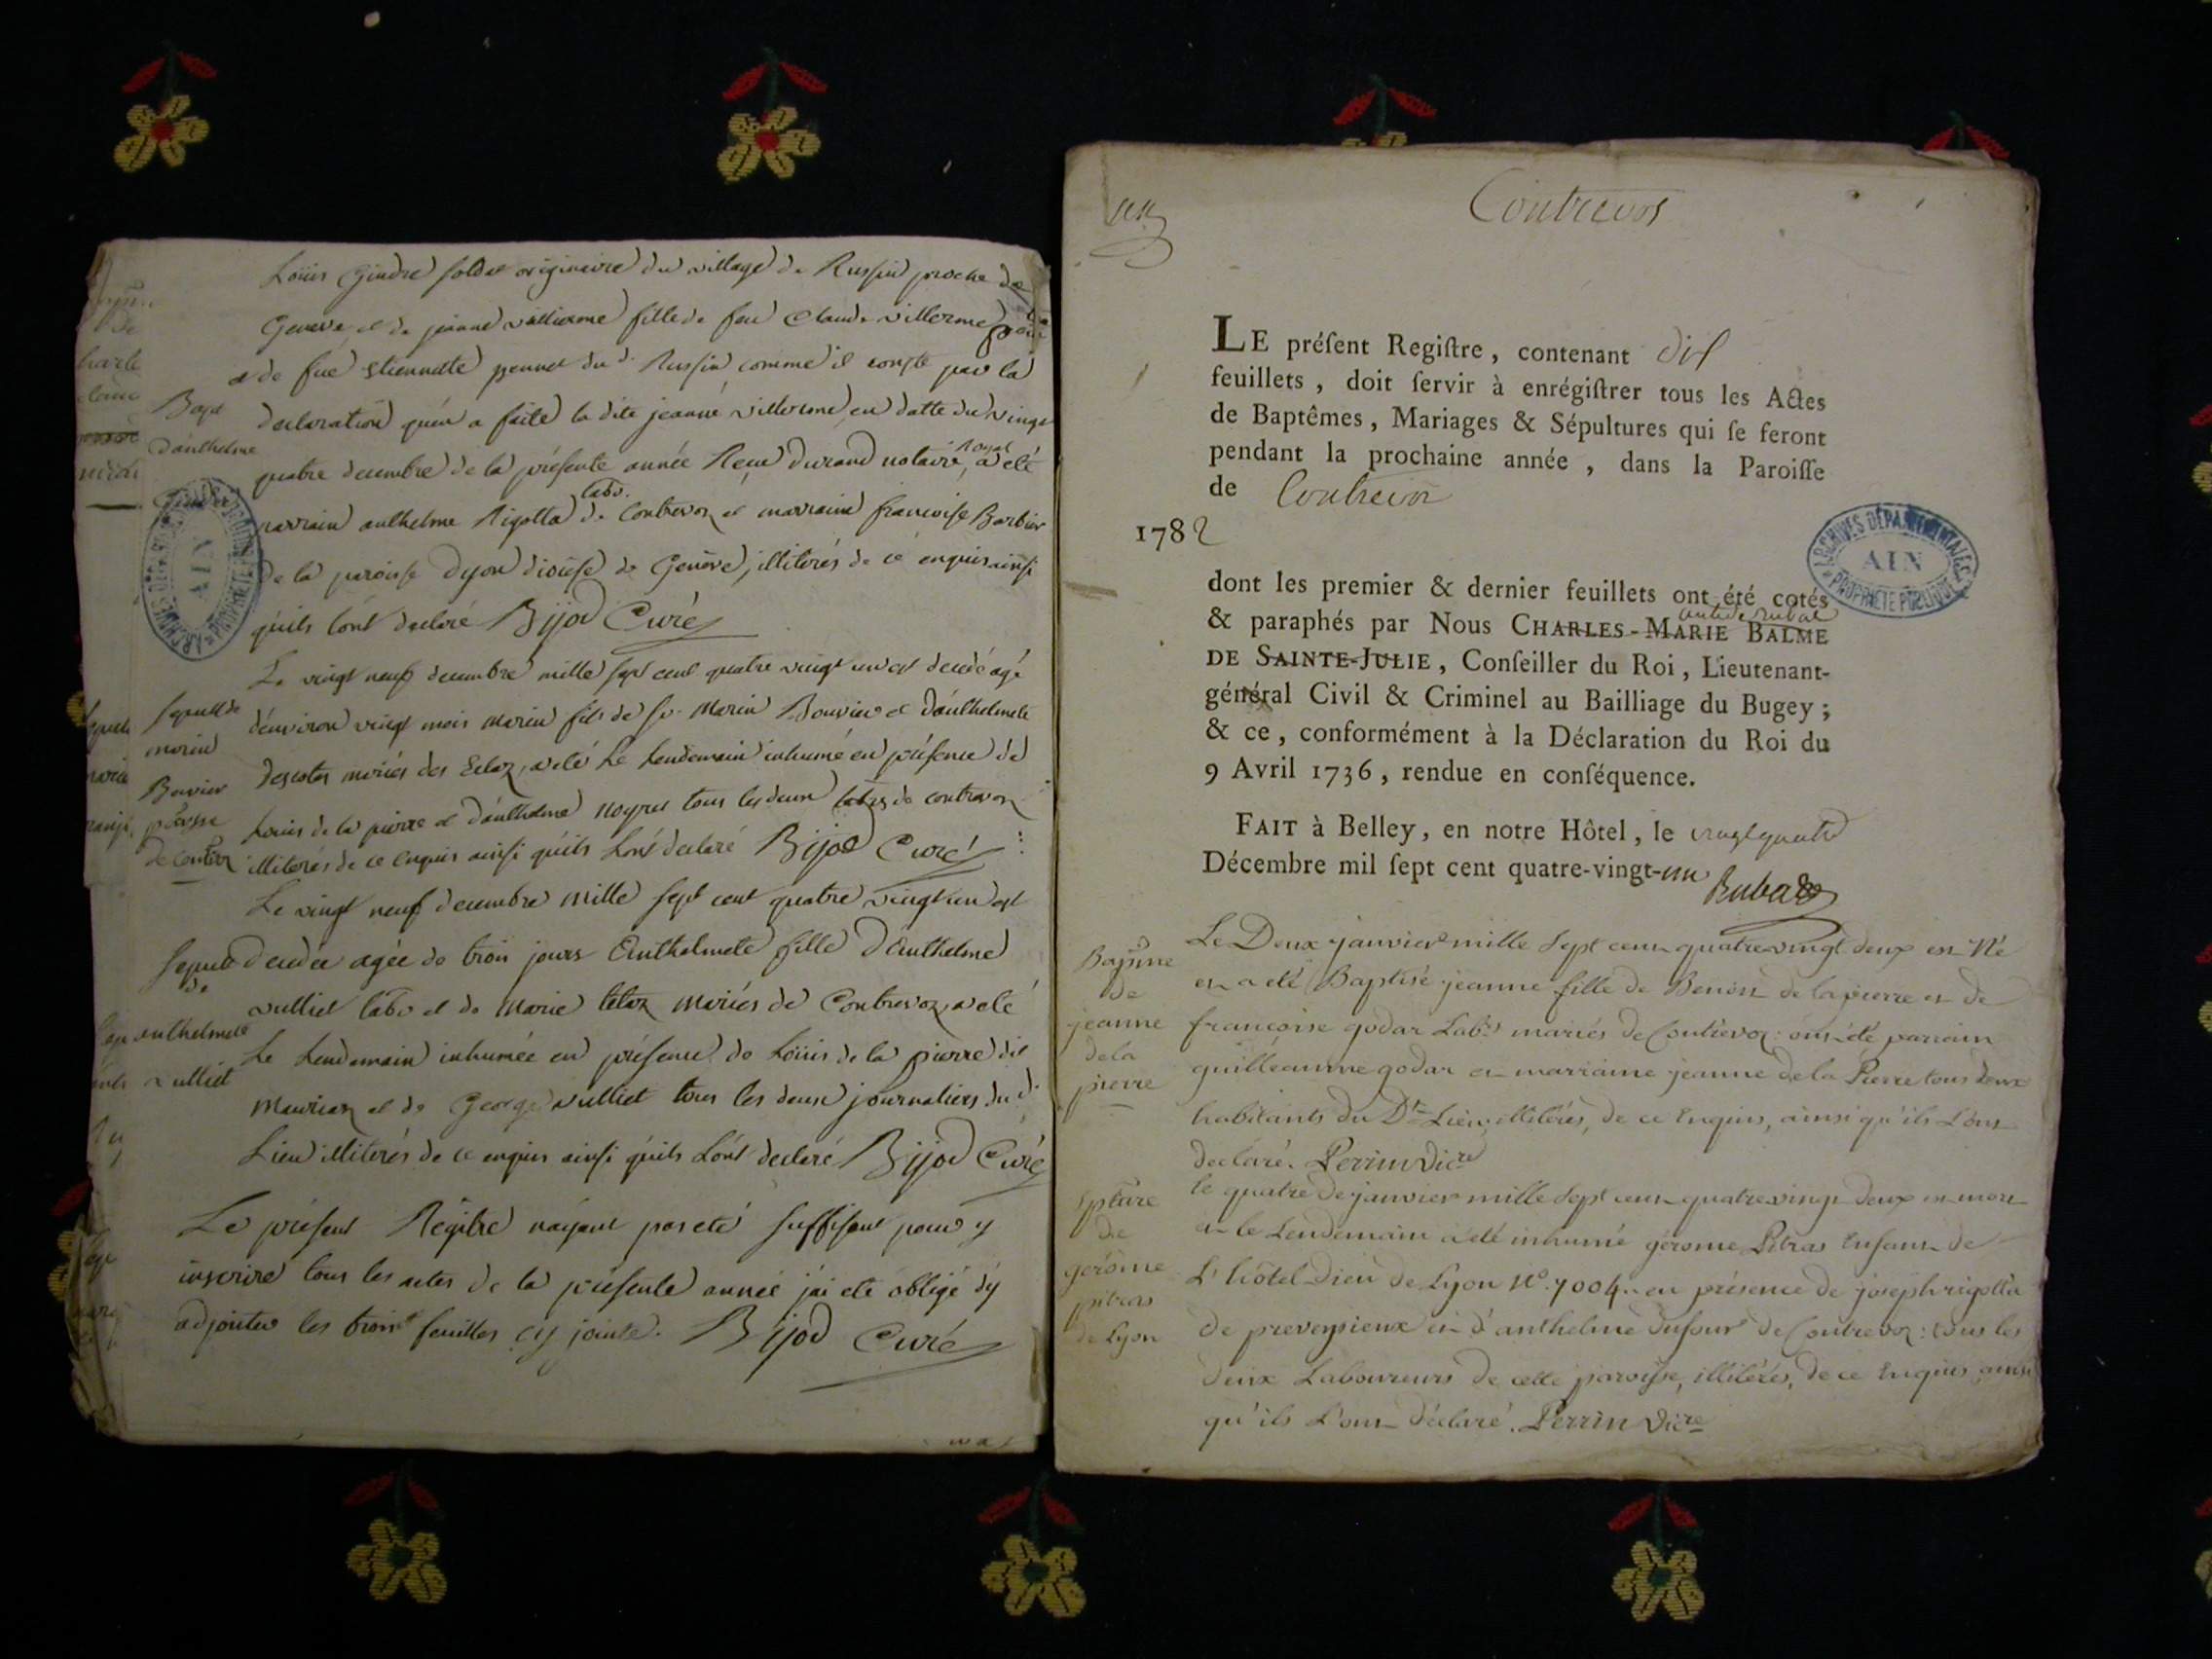 Loüis Gindre soldat originaire du village de Russin proche de
Geneve et de jeanne villierme fille de feu Claude villerme
et de füe Etiennette pennet du d. Russin comme il conste par la
Bapt
d'anthelme
Gindre
declaration qu'en a faite la dite jeanne villerme en datte du vingt
quatre decembre de la présente année Reçue Durand notaire Royal, a été
parrain anthelme Rigotta labr. de Contrevoz et marraine francoise Barbier
de la paroisse dyon diocèse de Genève, illiterés de ce enquis ainsi
qu'ils l'ont declaré Bijod Curé
Sepult de
morin
Bouvier
Le vingt neuf decembre mille sept cent quatre vingt un est decedé agé
d'environ vingt mois morin fils de Sr. Morin Bouvier et d'anthelmete
descotes mariés des Eclaz, a été le lendemain inhumé en présence de
Loüis de la pierre et d'anthelme noyret tous les deux labrs de contrevoz
illiterés de ce enquis ainsi qu'ils l'ont declaré Bijod Curé
Sepult
de
anthelmete
vulliet
Le vingt neuf decembre mille sept cent quatre vingt un est
decedée agée de trois jours Anthelmete fille d'Anthelme
vulliet labr et de Marie tétaz mariés de Contrevoz, a été
Le Lendemain inhumée en présence de Loüis de la pierre dit
Maurian et de George vulliet tous les deux journaliers du d.
Lieu illiterés de ce enquis ainsi qu'ils L'ont declaré Bijod Curé
Le présent Régitre n'ayant pas eté suffisant pour y
inscrire tous les actes de la présente année j'ai eté obligé d'y
adjouter les trois feuilles cy jointe. Bijod Curé
ARCHIVES DÉPARTEMENTALES
AIN
PROPRIÉTÉ PUBLIQUE
un
Contrevos
LE préſent Regiſtre, contenant dix
feuillets, doit ſervir à enrégiſtrer tous les Actes
de Baptêmes, Mariages & Sépultures qui ſe feront
pendant la prochaine année, dans la Paroiſſe
de Contrevoz
1782
ARCHIVES DÉPARTEMENTALES
AIN
PROPRIÉTÉ PUBLIQUE
dont les premier & dernier feuillets ont été cotés
& paraphés par Nous CHARLES-MARIE BALME
DE SAINTE-JULIE, Conſeiller du Roi, Lieutenant-
général Civil & Criminel au Bailliage du Bugey;
& ce, conformément à la Déclaration du Roi du
9 Avril 1736, rendue en conſéquence.
FAIT à Belley, en notre Hôtel, le vingt quatre
Décembre mil ſept cent quatre-vingt-un
Rubat
Baptme
de
jeanne
de la
pierre
Le Deux janvier mille Sept cent quatre vingt deux est Né
et a été Baptisé jeanne fille de Benoit de la pierre et de
françoise godar Labrs mariés de Contrevoz: ont été parrain
guilleaume godar et marraine jeanne de la Pierre tous deux
habitants du Dt Lieu, illitérés, de ce Enquis, ainsi qu'ils L'ont
declaré. Perrin Vicre
Spture
de
gerôme
pitras
de Lyon
le quatre de janvier mille Sept cent quatre vingt deux est mort
et le Lendemain a été inhumé gérome Pitras Enfant de
L'hôtel Dieu de Lyon No. 7004. en présence de joseph rigotta
de preveysieux et d'anthelme dufour de Contrevoz: tous les
deux Laboureurs de cette paroisse, illitérés, de ce Enquis, ainsi
qu'ils L'ont déclaré. Perrin Vicre